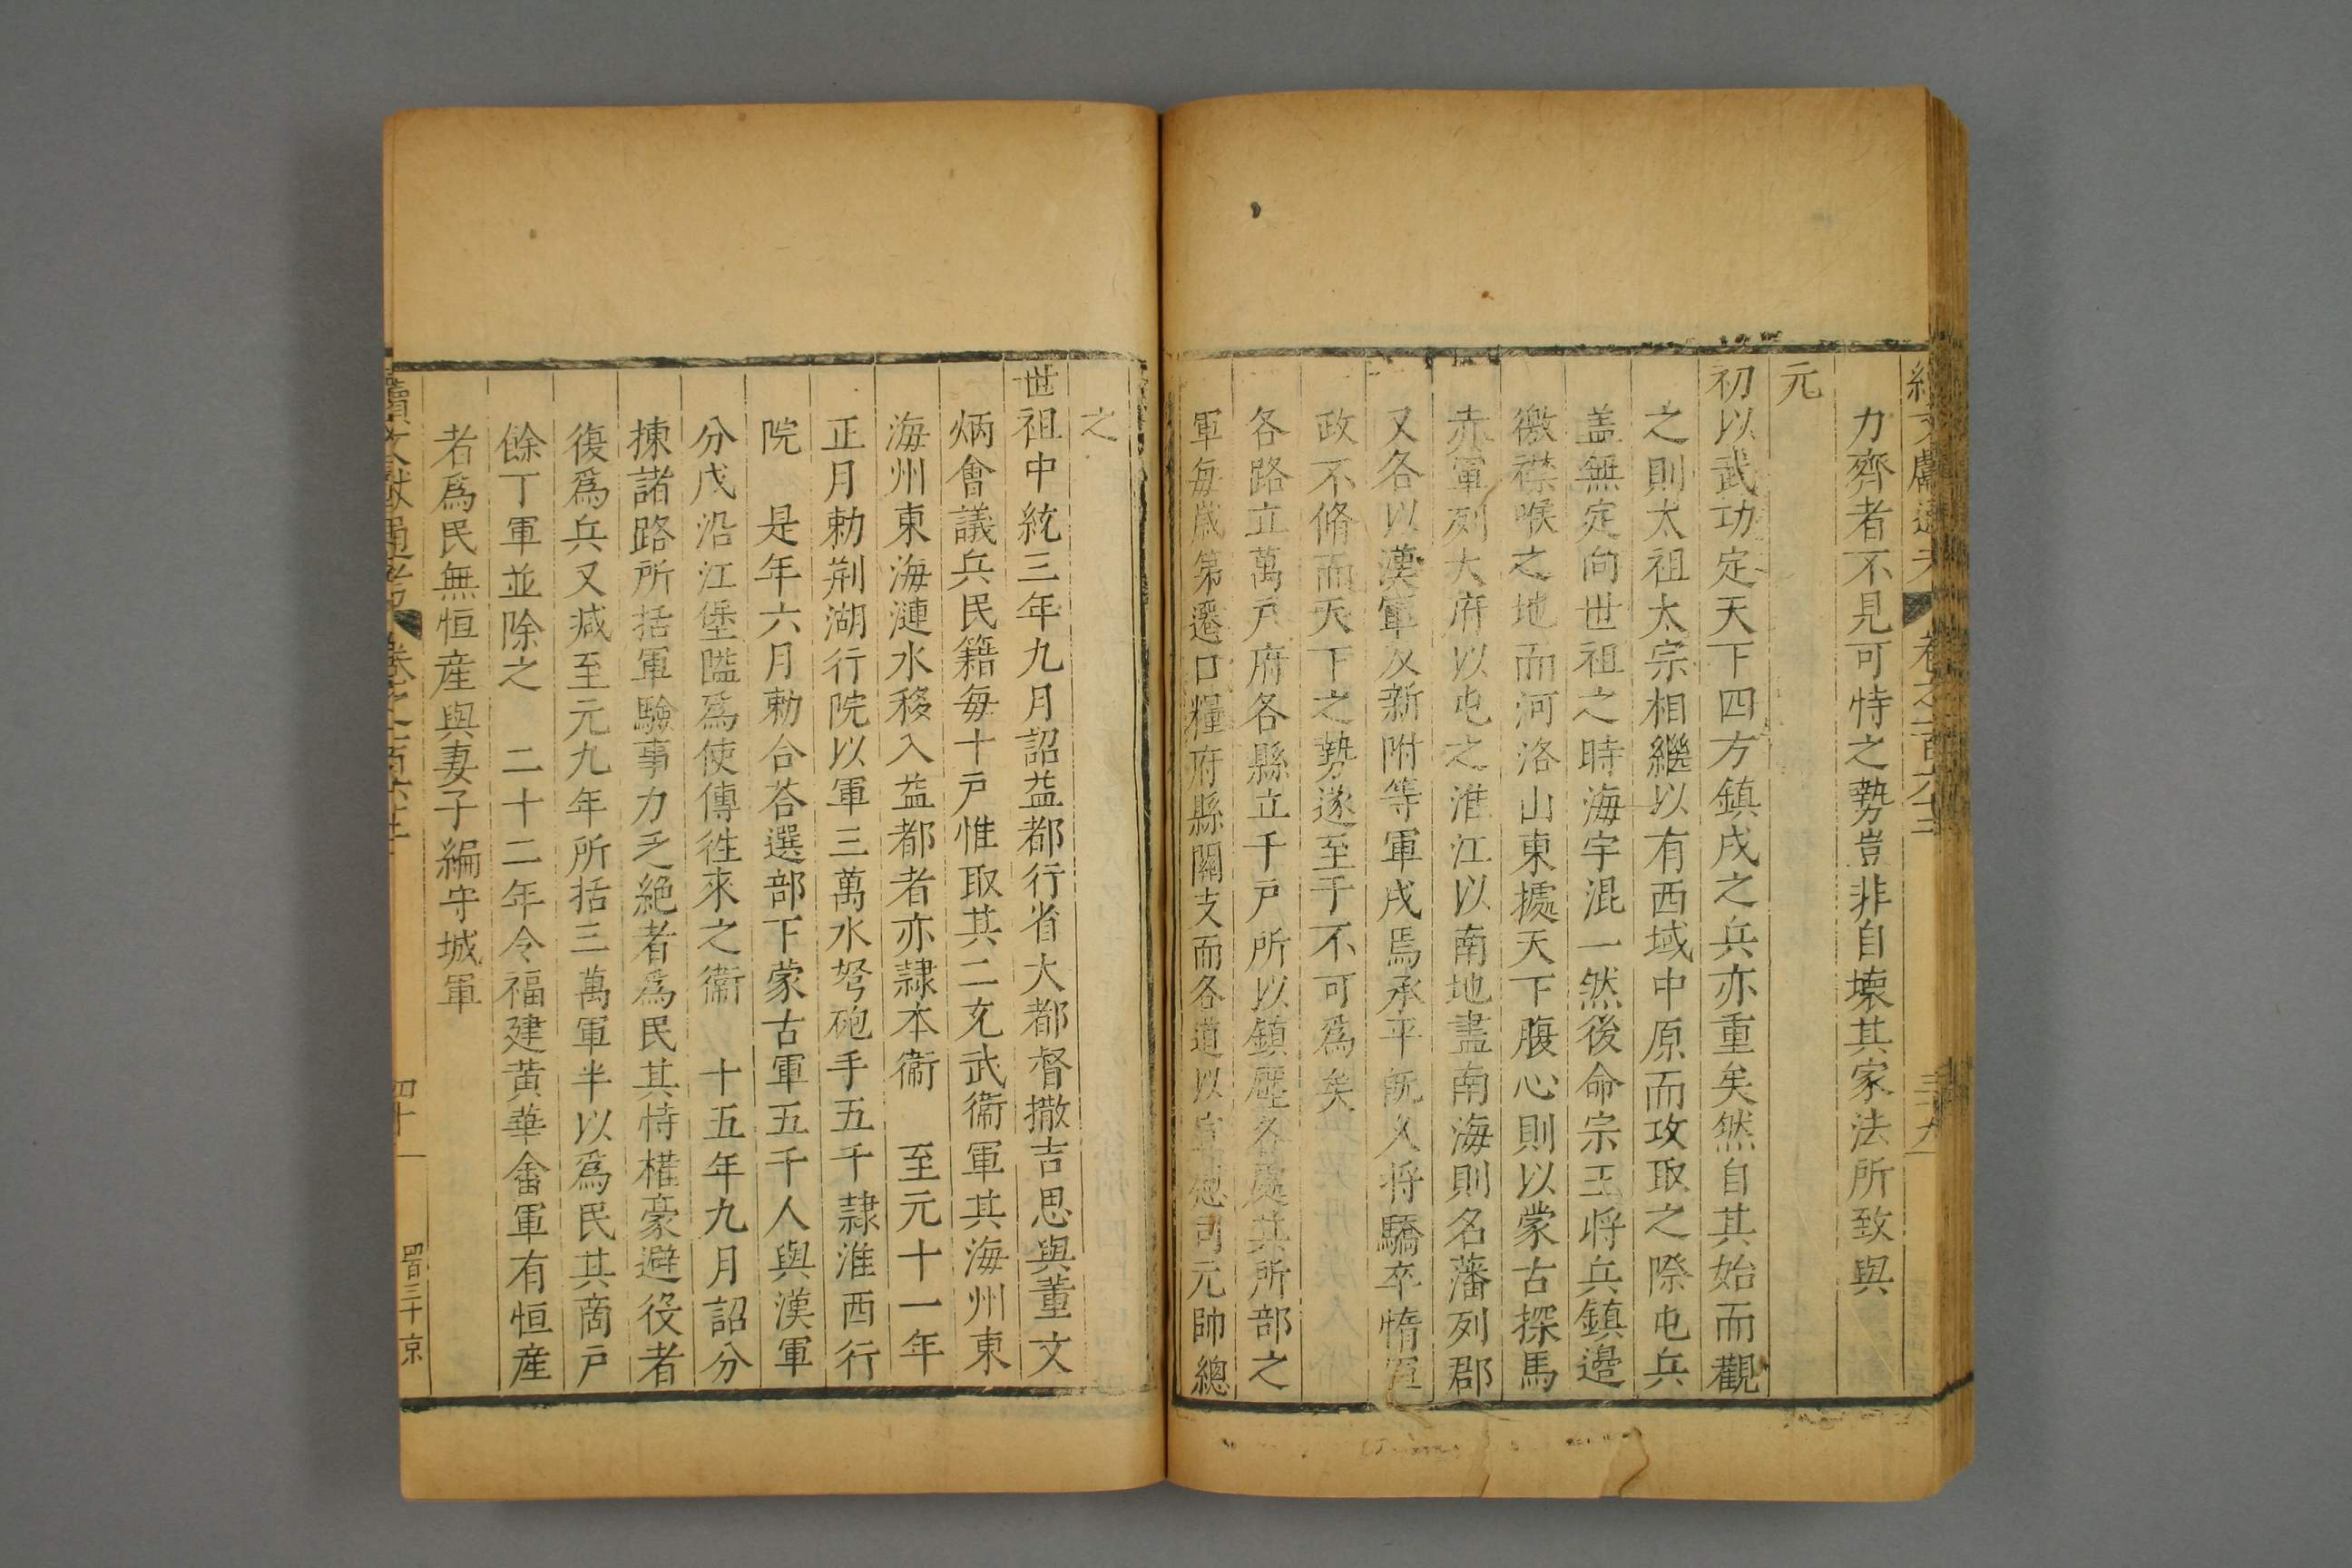 力齊者不見可恃之勢豈非自壊其家法所致與
元
初以武功定天下四方鎮戍之兵亦重矣然自其始而觀
之則太祖太宗相繼以有西域中原而攻取之際屯兵
盖無定向世祖之時海宇混一然後命宗王将兵鎮邊
徼襟喉之地而河洛山東據天下腹心則以蒙古探馬
赤軍列大府以屯之淮江以南地盡南海則名藩列郡
又各以漢軍及新附等軍戍焉承平既久将驕卒惰軍
政不脩而天下之勢遂至于不可為矣
各路立萬戸府各縣立千戸所以鎮壓各處其所部之
軍每歲第遷口糧府縣關支而各道以宣慰司元帥總
之
世祖中統三年九月詔益都行省大都督撒吉思與董文
炳會議兵民籍每十戸惟取其二充武衛軍其海州東
海州東海漣水移入益都者亦隷本衛　至元十一年
正月勅荆湖行院以軍三萬水弩砲手五千隷淮西行
院　是年六月勅合荅選部下蒙古軍五千人與漢軍
分戍沿江堡隘爲使傳徃來之衛　十五年九月詔分
揀諸路所括軍驗事力乏絶者爲民其恃權豪避役者
復爲兵又减至元九年所括三萬軍半以爲民其啇戸
餘丁軍並除之　二十二年令福建黄華畬軍有恒産
者爲民無恒産與妻子編守城軍
續文獻通考　卷之一百六十二
四十一
四百三十京